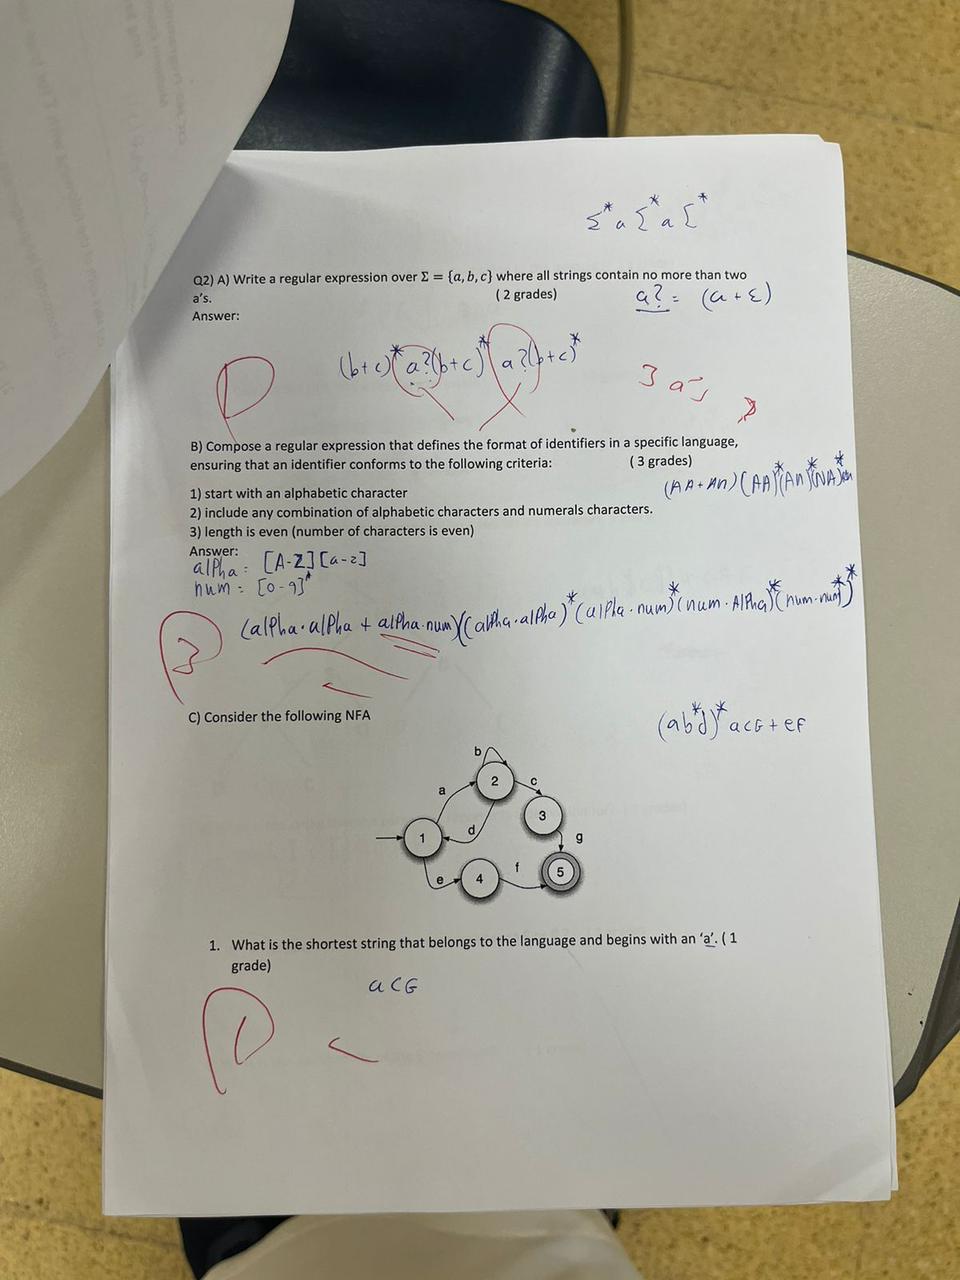 Σ* a Σ* a Σ*
Q2) A) Write a regular expression over Σ = {a, b, c} where all strings contain no more than two
a's. ( 2 grades)
a? = (a + ε)
Answer:
(b+c)* a?(b+c)* a?(b+c)*
3 a's
B) Compose a regular expression that defines the format of identifiers in a specific language,
ensuring that an identifier conforms to the following criteria: ( 3 grades)
(AA+An)(AA)*(An)*(NA)*
1) start with an alphabetic character
2) include any combination of alphabetic characters and numerals characters.
3) length is even (number of characters is even)
Answer:
alpha = [A-Z][a-z]
num = [0-9]*
(alpha.alpha + alpha.num)((alpha.alpha)*(alpha.num)*(num.Alpha)*(num.num)*)*
3
C) Consider the following NFA
(ab*d)* acG + eF
b
2
c
a
3
d
1
g
e
4
f
5
1. What is the shortest string that belongs to the language and begins with an 'a'. ( 1
grade)
acG
1